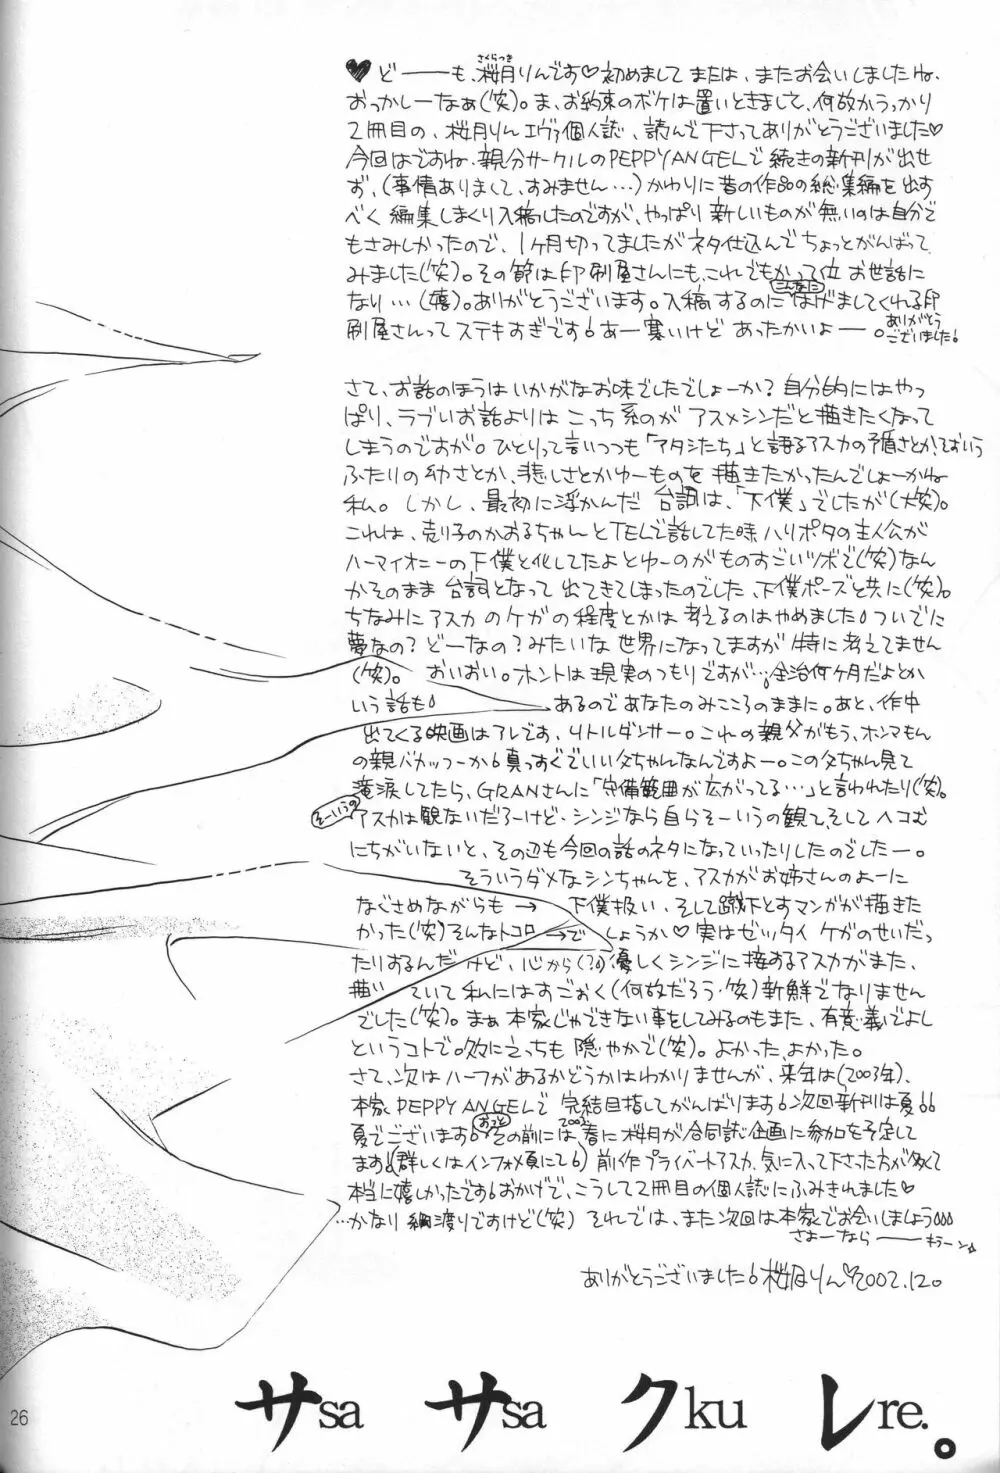 ♥どーーも、桜月りんです♡初めまして または、またお会いしましたね。
さくらつき
おっかしーなぁ(笑)。ま、お約束のボケは置いときまして、何故かうっかり
2冊目の、桜月りん エヴァ個人誌、読んで下さってありがとうございました♡
今回はですね、親分サークルのPEPPY ANGELで続きの新刊が出せ
ず、(事情ありまして、すみません…)かわりに昔の作品の総集編を出す
べく編集しまくり入稿したのですが、やっぱり新しいものが無いのは自分で
もさみしかったので、1ヶ月切ってましたがネタ仕込んでちょっとがんばって
みました(笑)。その節は印刷屋さんにも、これでもかって位お世話に
なり…(嬉)。ありがとうございます。入稿するのにはげましてくれる印
刷屋さんってステキすぎです!あー寒いけど あったかいよーー。
ありがとう
ございました!
さて、お話のほうはいかがなお味でしたでしょーか?自分的にはやっ
ぱり、ラブいお話よりは こっち系のが アスメシンだと描きたくなって
しまうのですが。ひとりって言いつつも「アタシたち」と語るアスカの矛盾さとか、そおいう
ふたりの幼さとか、悲しさとかゆーものを 描きたかったんでしょーかね
私。しかし、最初に浮かんだ 台詞は、「下僕」でしたが(大笑)。
これは、売り子のかおるちゃんとTELで話してた時ハリポタの主人公が
ハーマイオニーの下僕と化してたよとゆーのがものすごいツボで(笑)なん
かそのまま台詞となって出てきてしまったのでした、下僕ポーズと共に(笑)。
ちなみにアスカのケガの程度とかは考えるのはやめました!ついでに
夢なの?どーなの?みたいな世界になってますが特に考えてません
(笑)。おいおい。ホントは現実のつもりですが…!全治何ヶ月だよとか
いう話も! あるのであなたのみこころのままに。あと、作中
出てくる映画はアレです、リトルダンサー。これの親父がもう、ホンマもん
の親バカッつーか!真っすぐでいい父ちゃんなんですよー。この父ちゃん見て
滝涙してたら、GRANさんに「守備範囲が広がってる…」と言われたり(笑)。
そーいうの
アスカは観ないだろーけど、シンジなら自らそーいうの観て、そしてヘコむ
にちがいないと、その辺も今回の話のネタになっていったりしたのでしたー。
そういうダメなシンちゃんを、アスカがお姉さんのよーに
なぐさめながらも → 下僕扱い、そして蹴下とすマンガが描きた
かった(笑)そんなトコロ →で しょうか♡実はゼッタイ ケガのせいだっ
たりするんだけど、心から(?!)優しくシンジに接するアスカがまた、
描い ていて私にはすごおく(何故だろう・笑)新鮮でなりません
でした(笑)。まぁ本家じゃできない事をしてみるのもまた、有意義でよし
というコトで。久々にえっちも 隠やかで(笑)。よかった、よかった。
さて、次はハーフがあるかどうかはわかりませんが、来年は(2003年)、
本家PEPPY ANGELで 完結目指してがんばります!次回新刊は夏!!
夏でございます!おっとその前には、2003春に桜月が合同誌企画に参加を予定して
ます!(詳しくはインフォメ頁にて!)前作プライベートアスカ、気に入って下さった方が多くて
本当に嬉しかったです!おかげで、こうして2冊目の個人誌にふみきれました♡
…かなり綱渡りですけど(笑) それでは、また次回は本家でお会いしましょう。。。
さよーならーーー キラーン☆
ありがとうございました!桜月りん♡2002.12。
サsa サsa クku レre.。
26